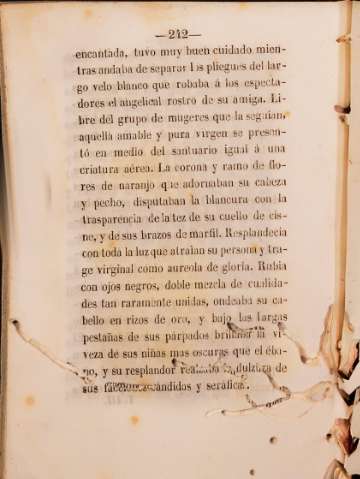 —212—
encantada, tuvo muy buen cuidado mien-
tras andaba de separar los pliegues del lar-
go velo blanco que robaba á los especta-
dores el angelical rostro de su amiga. Li-
bre del grupo de mugeres que la seguian,
aquella amable y pura virgen se presen-
tó en medio del santuario igual á una
criatura aérea. La corona y ramo de flo-
res de naranjo que adornaban su cabeza
y pecho, disputaban la blancura con la
trasparencia de la tez de su cuello de cis-
ne, y de sus brazos de marfil. Resplandecia
con toda la luz que atraian su persona y tra-
ge virginal como aureola de gloria. Rubia
con ojos negros, doble mezcla de cualida-
des tan raramente unidas, ondeaba su ca-
bello en rizos de oro, y bajo las largas
pestañas de sus párpados brillaba la vi-
veza de sus niñas mas oscuras que el éba-
no, y su resplandor realzaba la dulzura de
sus facciones cándidas y